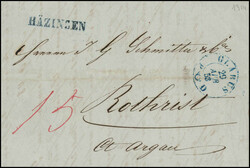 HÄZINGEN
Herren J G Schmitter & C
GLARUS
15
Rothrist
Ct Argau